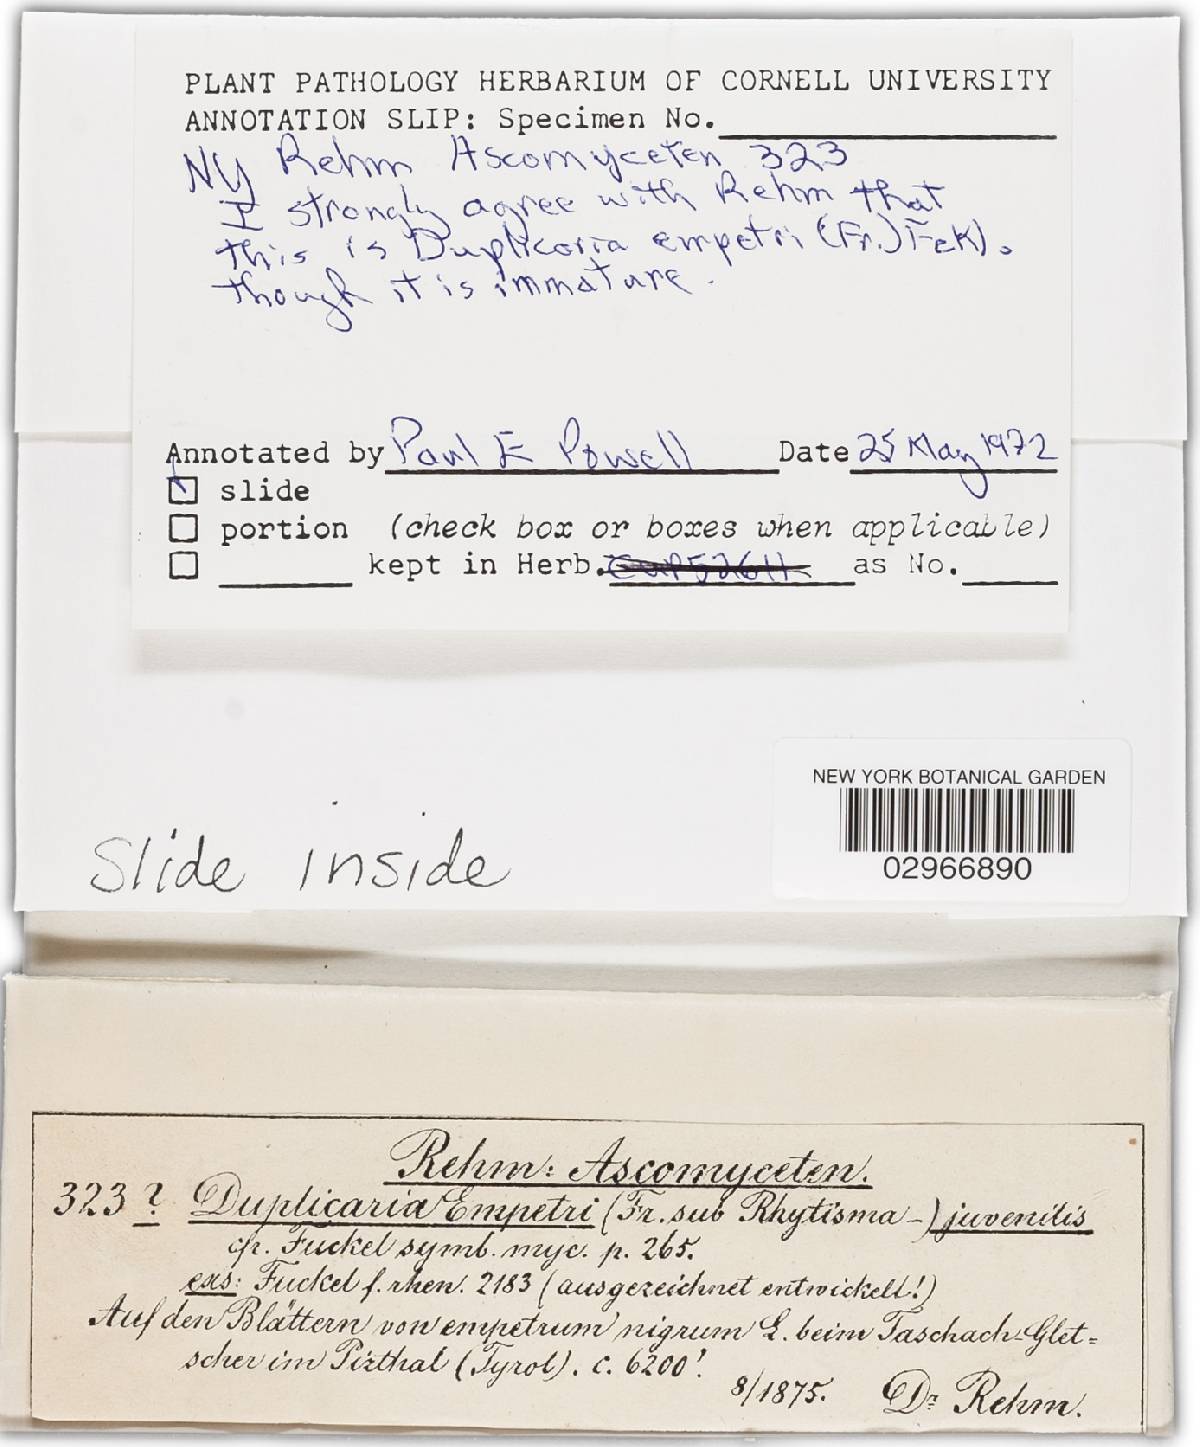 PLANT PATHOLOGY HERBARIUM OF CORNELL UNIVERSITY
ANNOTATION SLIP: Specimen No.
NY Rehm Ascomyceten 323
I strongly agree with Rehm that
this is Duplicaria empetri (Fr.) Fckl.
though it is immature.
Annotated by Paul E Powell Date 25 May 1972
slide
portion (check box or boxes when applicable)
kept in Herb. as No.
NEW YORK BOTANICAL GARDEN
02966890
Slide inside
Rehm: Ascomyceten.
323? Duplicaria Empetri (Fr. sub Rhytisma-) juvenilis
cfr. Fuckel symb. myc. p. 265.
exs: Fuckel f. rhen. 2183 (ausgezeichnet entwickelt!)
Auf den Blättern von empetrum nigrum L. beim Taschach-Glet=
scher im Pitzthal (Tyrol). c. 6200'
8/1875. Dr Rehm.